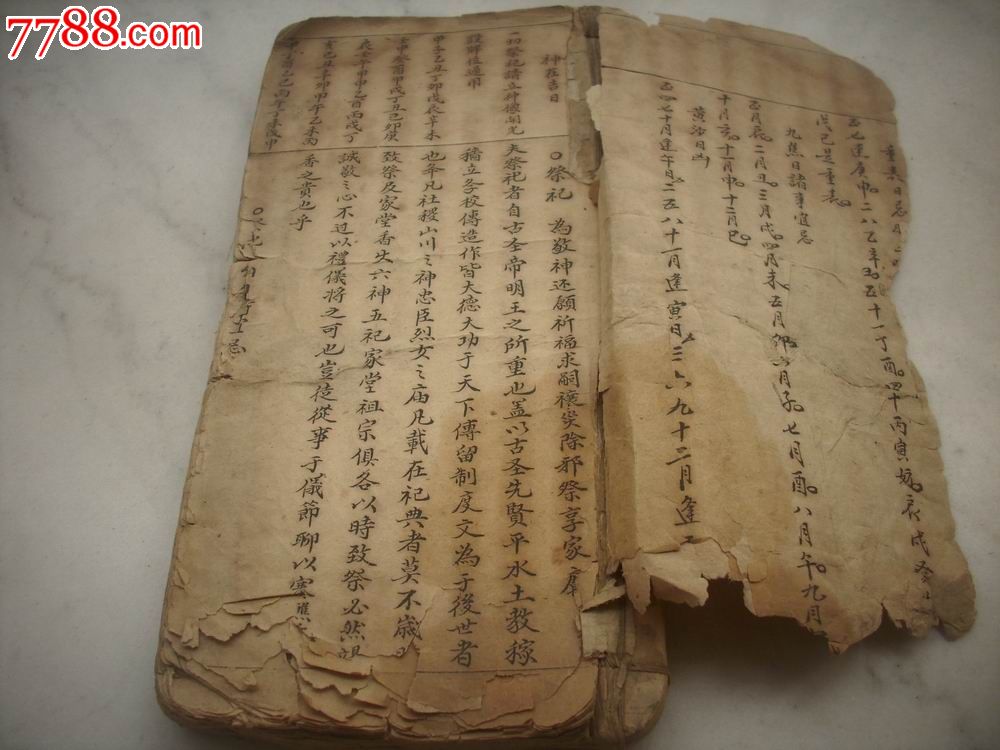 7788.com
重喪日忌
正七連庚申二八乙辛正五十一丁酉四十丙寅
戊巳是重喪
九焦日諸事宜忌
正月辰二月丑三月戌四月未五月卯六月子七月酉八月午九月
十月亥十一月申十二月巳
黃沙日凶
正四七十月逢午日二五八十一月逢寅日三六九十二月逢
神在吉日
一切祭祀請立神像開光
甲子乙丑丁卯戊辰辛未
壬申癸酉甲戌丁丑己卯庚
〇祭祀 為敬神还願祈福求嗣禳災除邪祭享家庫
夫祭祀者自古圣帝明王之所重也盖以古圣先賢平水土教稼
穡立学校傳造作皆大德大功于天下傳留制度文為于後世者
也弁凡社稷山川之神忠臣烈女之庙凡載在祀典者莫不歲時
致祭及家堂香火六神五祀家堂祖宗俱各以時致祭必然竭
誠敬之心不过以禮儀將之可也豈徒從事于儀節聊以塞應
香之責也乎